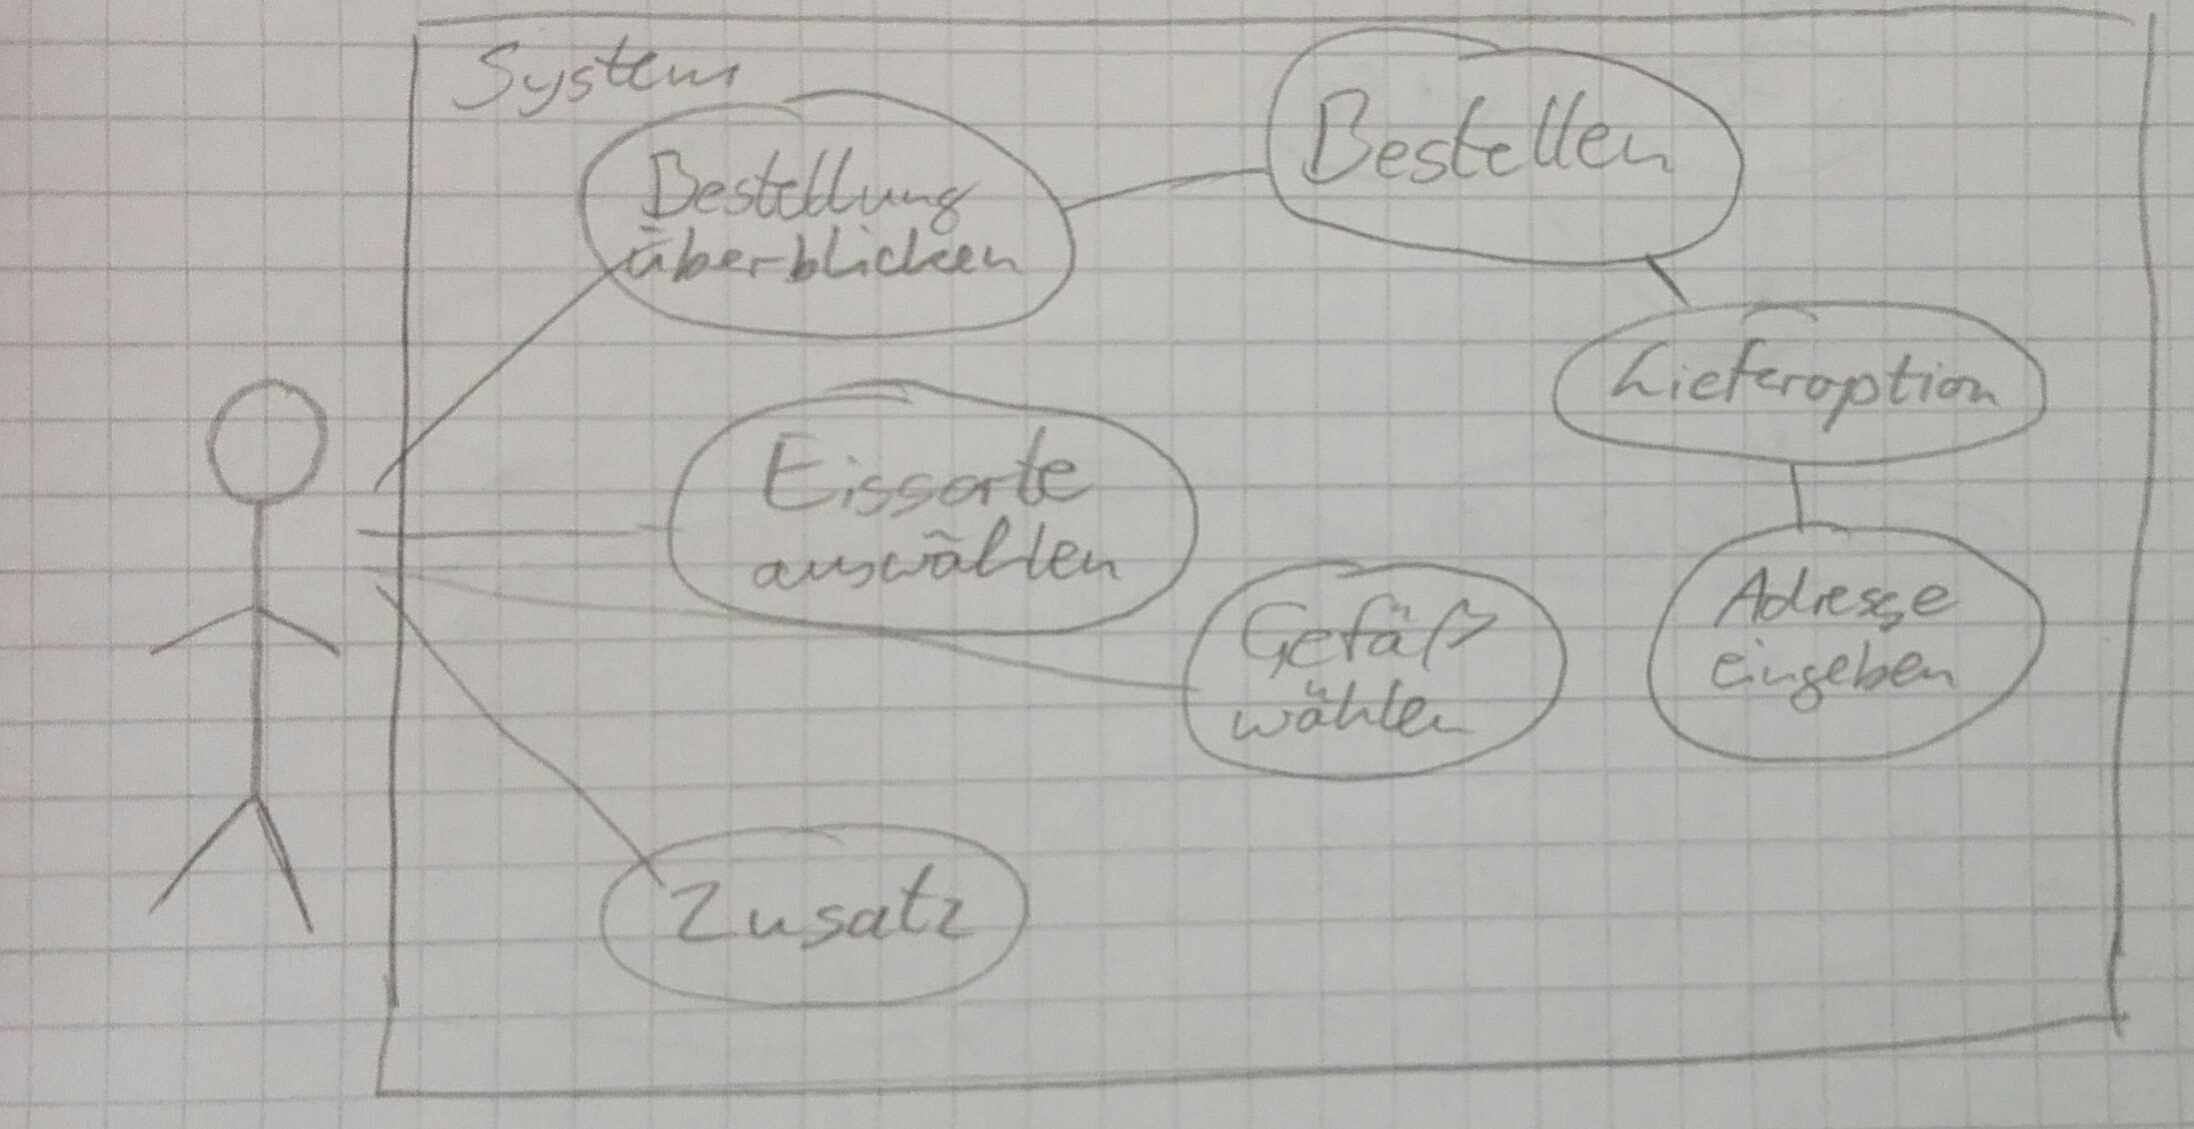 System
Bestellung
überblicken
Bestellen
Lieferoption
Eissorte
auswählen
Gefäß
wählen
Adresse
eingeben
Zusatz